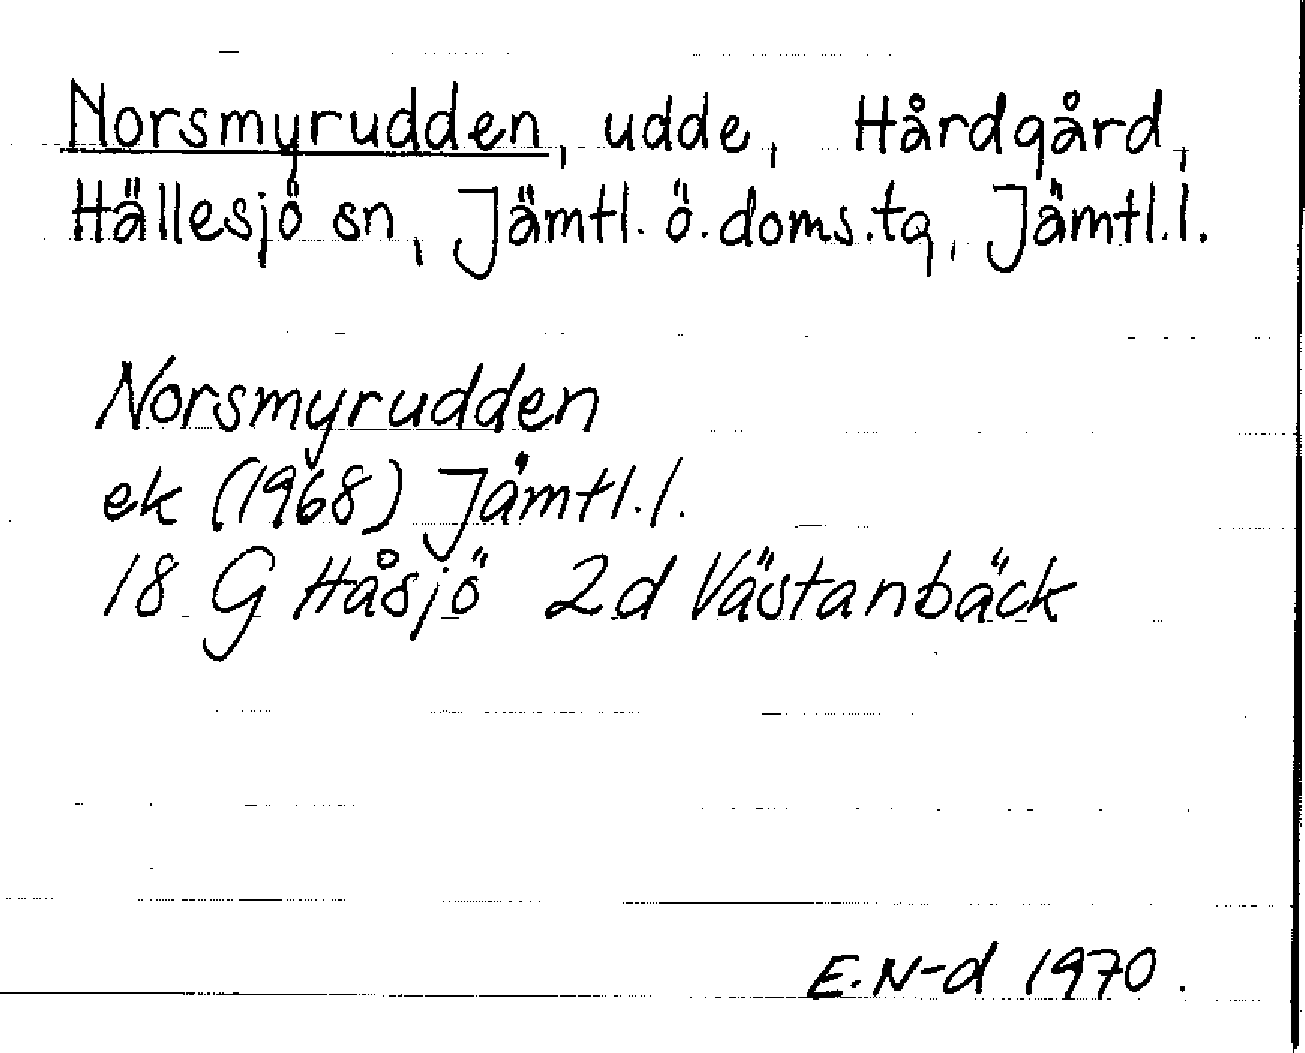 Norsmyrudden, udde, Hårdgård,
Hällesjö sn, Jämtl. ö. doms.tg, Jämtl.l.
Norsmyrudden
ek (1968) Jämtl.l.
18 G Håsjö 2d Västanbäck
E.N-d 1970.